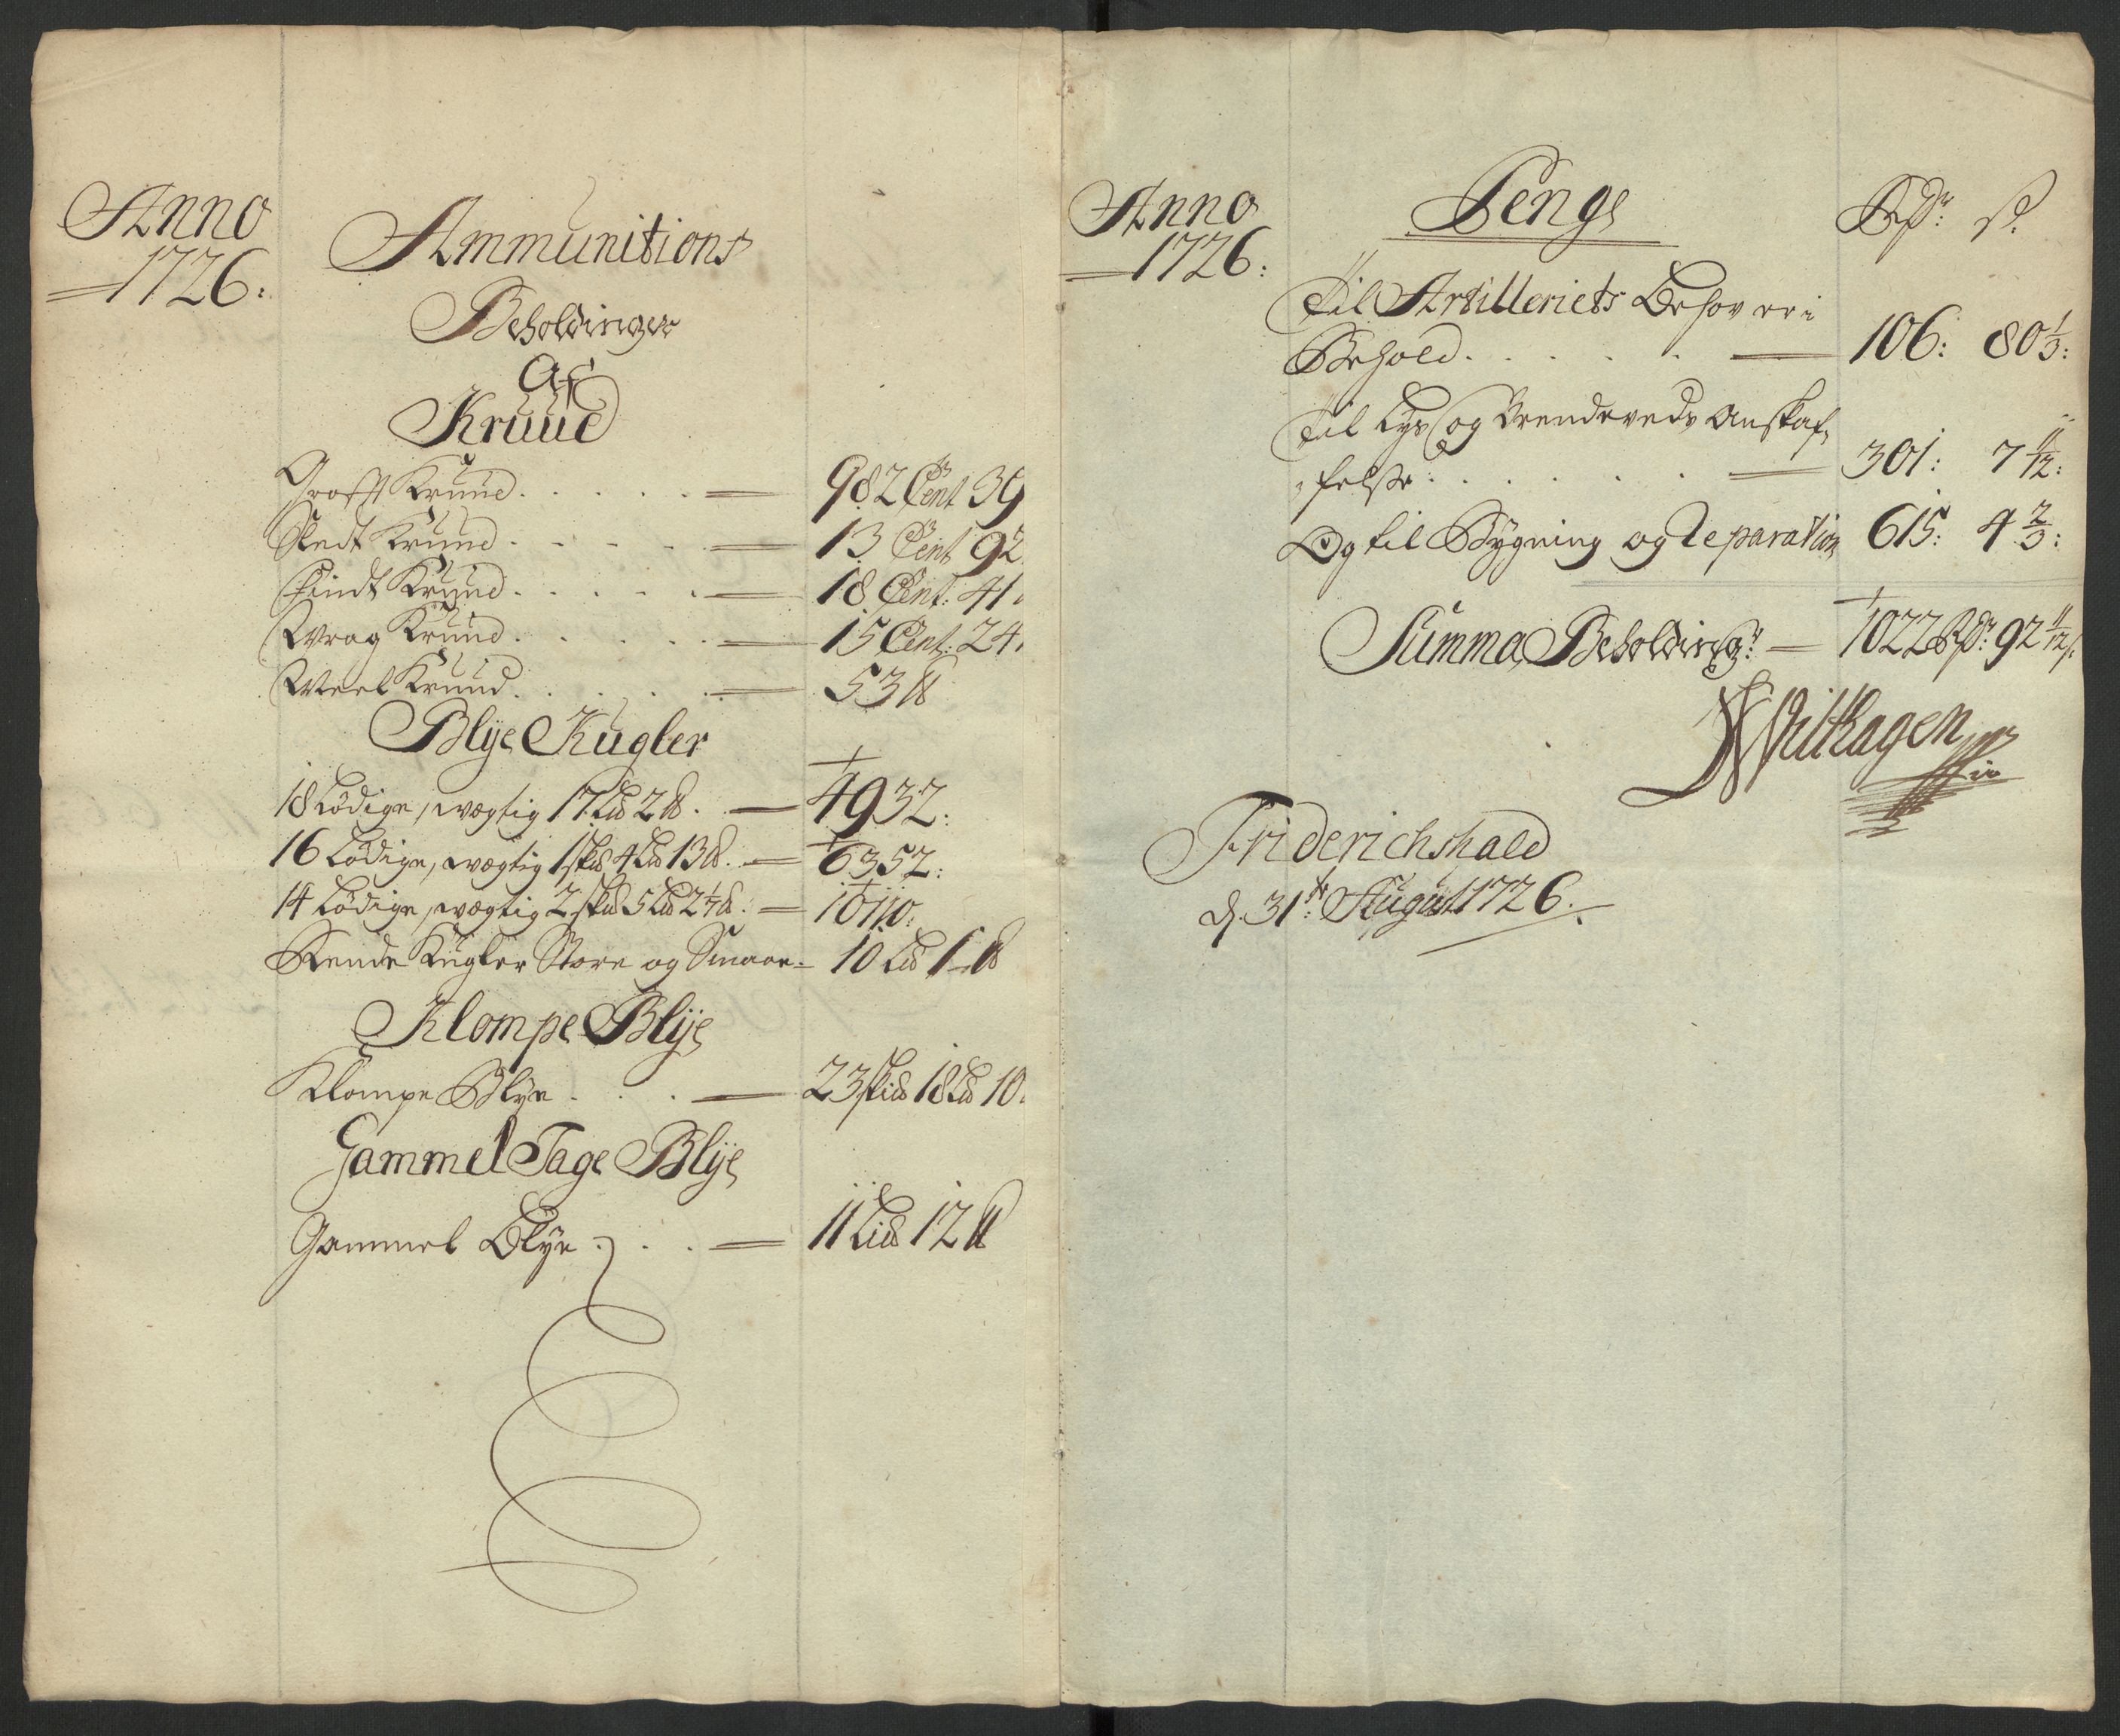 Anno
1726:
Ammunitions
Beholdinger
Af
Kruud
Groft Kruud . . . . . 982 Cent 39
Sledt Kruud . . . . . 13 Cent 92
Fiindt Kruud . . . . . 18 Cent: 41
Wrag Kruud . . . . . 15 Cent: 24
Meel Kruud . . . . . 53 ℔
Blÿe Kugler
18 Lödige, vægtig 17 L℔ 2 ℔. 4932:
16 Lödige, vægtig 1 Sk℔ 4 L℔ 13 ℔. 6352:
14 Lödige, vægtig 2 Sk℔ 5 L℔ 2½ ℔. 10110:
Rende Kugler Store og Smaae 10 L℔ 1 ℔
Klompe Blÿe
Klompe Blÿe . . . 23 Sk℔ 18 L℔ 10.
Gammel Tage Blÿe
Gammel Blÿe . . . 11 L℔ 12 ℔
Anno
1726:
Penge
Rdr: ß.
Til Artilleriets Behov er i
Behold . . . . . 106: 80⅓:
Til Lÿs og Brendeveds Anskaf-
felse: . . . . . 301: 7 11/12:
Og til Bÿgning og Reparation 615: 4⅔:
Summa Beholdingr: 1022 Rdr: 92 11/12 ß:
Vilhagen
Friderichshald
d. 31te: August 1726.